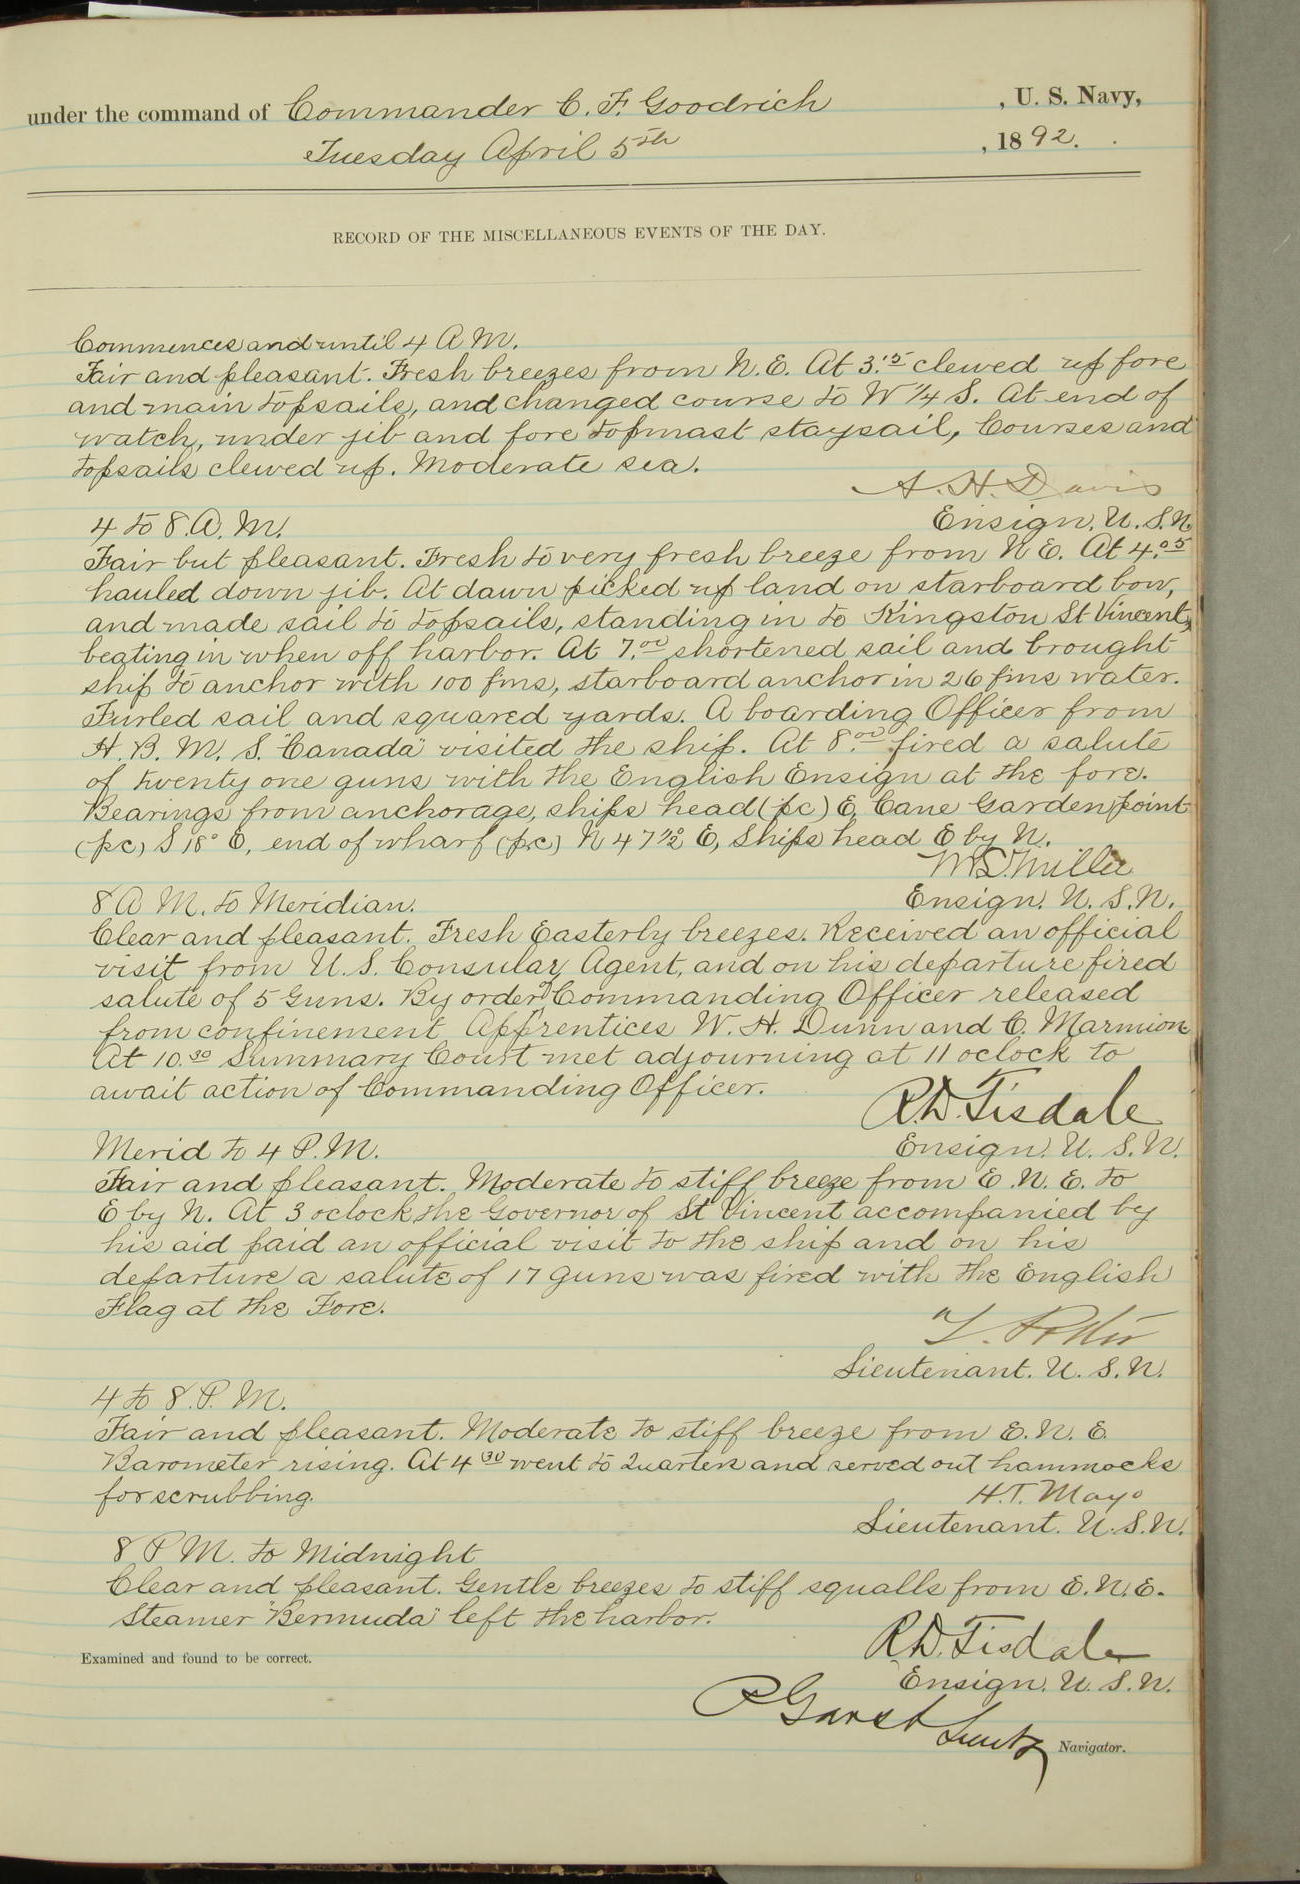 under the command of Commander C. F. Goodrich , U. S. Navy,
Tuesday April 5th , 1892.
RECORD OF THE MISCELLANEOUS EVENTS OF THE DAY.
Commences and until 4 A M.
Fair and pleasant. Fresh breezes from N. E. At 3.15 clewed up fore
and main topsails, and changed course to W 1/4 S. At end of
watch, under jib and fore topmast staysail, Courses and
topsails clewed up. Moderate sea.
A. H. Davis
Ensign, U. S. N.
4 to 8. A. M.
Fair but pleasant. Fresh to very fresh breeze from N E. At 4.05
hauled down jib. At dawn picked up land on starboard bow,
and made sail to topsails, standing in to Kingston St Vincent,
beating in when off harbor. At 7.00 shortened sail and brought
ship to anchor with 100 fms, starboard anchor in 26 fms water.
Furled sail and squared yards. A boarding Officer from
H. B. M. S. "Canada" visited the ship. At 8.00 fired a salute
of twenty one guns with the English Ensign at the fore.
Bearings from anchorage, ships head (pc) E, Cane Garden point
(pc) S 18° E, end of wharf (p.c) N 47 1/2 E, Ships head E by N.
Ensign. U. S. N.
8 A M. to Meridian.
Clear and pleasant. Fresh Easterly breezes. Received an official
visit from U. S. Consular Agent, and on his departure fired
salute of 5 Guns. By order of Commanding Officer released
from confinement Apprentices W. H. Dunn and C. Marmion
At 10.30 Summary Court met adjourning at 11 oclock to
await action of Commanding Officer.
R. D. Tisdale
Ensign. U. S. N.
Merid to 4 P. M.
Fair and pleasant. Moderate to stiff breeze from E. N. E. to
E by N. At 3 oclock the Governor of St Vincent accompanied by
his aid paid an official visit to the ship and on his
departure a salute of 17 guns was fired with the English
Flag at the Fore.
Lieutenant. U. S. N.
4 to 8. P. M.
Fair and pleasant. Moderate to stiff breeze from E. N. E.
Barometer rising. At 4 30 went to Quarters and served out hammocks
for scrubbing.
H. T. Mayo
Lieutenant. U. S. N.
8 P M. to Midnight
Clear and pleasant. Gentle breezes to stiff squalls from E. N. E.
Steamer "Bermuda" left the harbor.
R. D. Tisdale
Examined and found to be correct.
Ensign. U. S. N.
P Garst
Navigator.